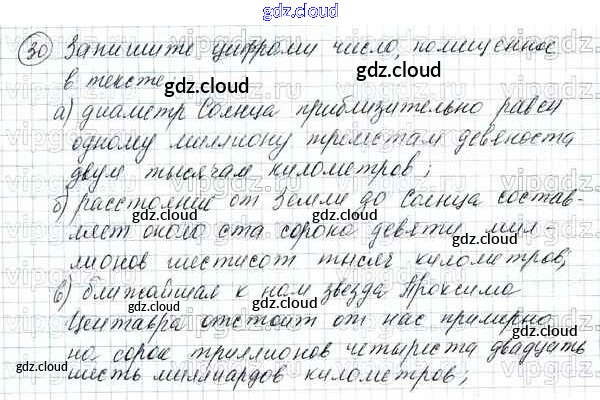 gdz.cloud
30 Запишите цифрами число, помещенное
в тексте
а) диаметр Солнца приблизительно равен
одному миллиону тремстам девяноста
двум тысячам километров;
б) расстояние от Земли до Солнца состав-
ляет около ста сорока девяти мил-
лионов шестисот тысяч километров;
в) ближайшая к нам звезда Проксима
Центавра отстоит от нас примерно
на сорок триллионов четыреста двадцать
шесть миллиардов километров;
gdz.cloud
gdz.cloud
gdz.cloud
gdz.cloud
gdz.cloud
gdz.cloud
gdz.cloud
gdz.cloud
gdz.cloud